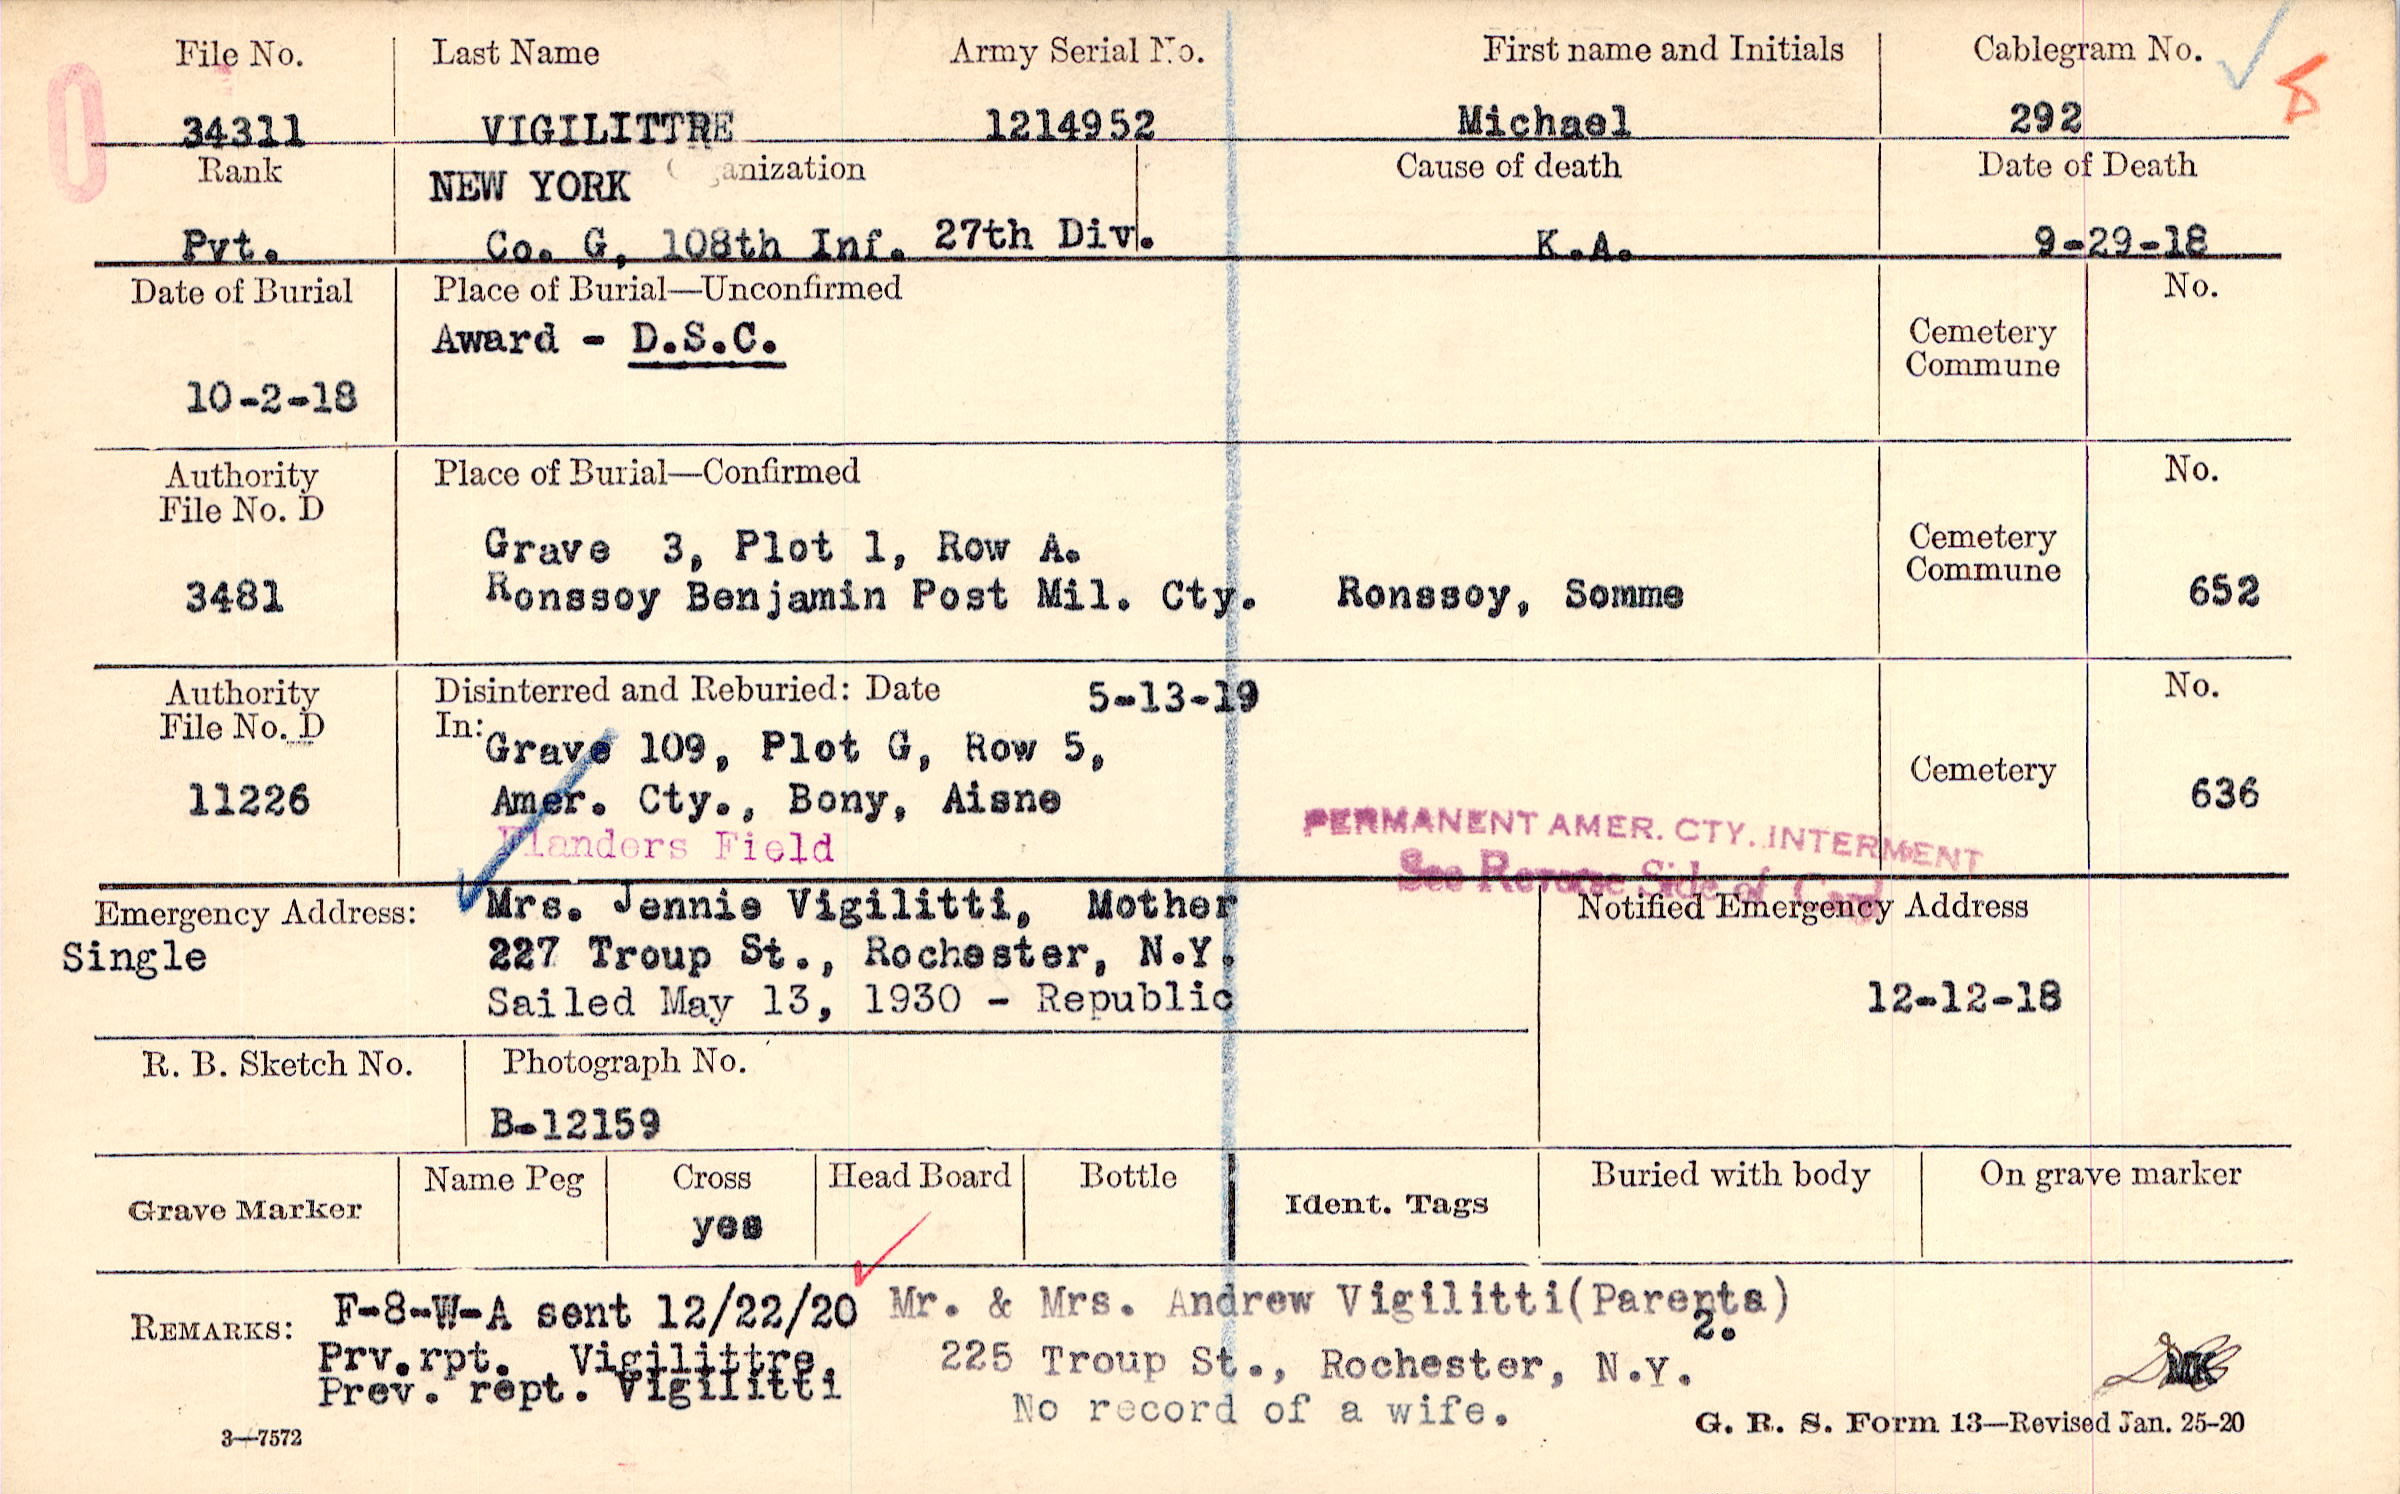 File No. Last Name Army Serial No. First name and Initials Cablegram No.
34311 VIGILITTRE 1214952 Michael 292
Rank NEW YORK anization Cause of death Date of Death
Pvt. Co. G, 108th Inf. 27th Div. K.A. 9-29-18
Date of Burial Place of Burial—Unconfirmed No.
Award - D.S.C. Cemetery
Commune
10-2-18
Authority Place of Burial—Confirmed No.
File No. D
Grave 3, Plot 1, Row A. Cemetery
Commune
3481 Ronssoy Benjamin Post Mil. Cty. Ronssoy, Somme 652
Authority Disinterred and Reburied: Date 5-13-19 No.
File No. D In: Grave 109, Plot G, Row 5,
Cemetery
11226 Amer. Cty., Bony, Aisne 636
Flanders Field PERMANENT AMER. CTY. INTERMENT
See Reverse Side of Card
Emergency Address: Mrs. Jennie Vigilitti, Mother Notified Emergency Address
Single 227 Troup St., Rochester, N.Y.
Sailed May 13, 1930 - Republic 12-12-18
R. B. Sketch No. Photograph No.
B-12159
Grave Marker Name Peg Cross Head Board Bottle Ident. Tags Buried with body On grave marker
yes
REMARKS: F-8-W-A sent 12/22/20 Mr. & Mrs. Andrew Vigilitti(Parents)
2.
Prv.rpt. Vigilittre. 225 Troup St., Rochester, N.Y. MK
Prev. rept. Vigilitti No record of a wife.
3—7572 G. R. S. Form 13—Revised Jan. 25-20